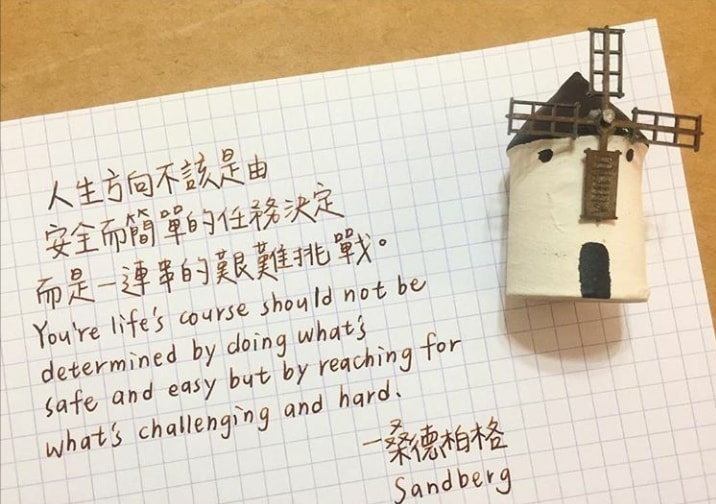 人生方向不該是由
安全而簡單的任務決定
而是一連串的艱難挑戰。
You're life's course should not be
determined by doing what's
safe and easy but by reaching for
what's challenging and hard.
－桑德柏格
Sandberg